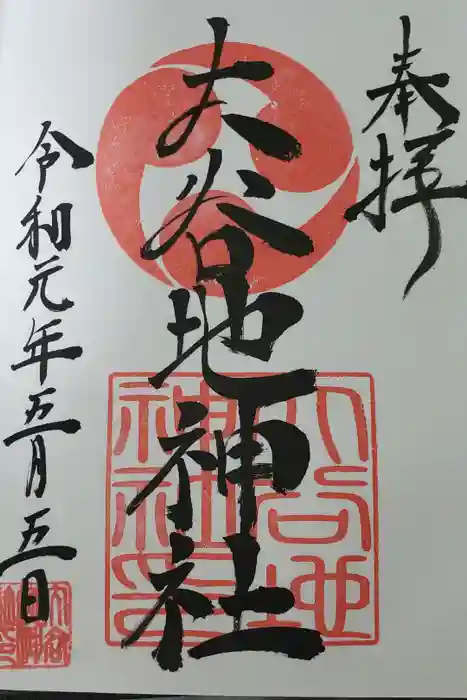 奉拝
大谷地神社
令和元年五月五日
大谷地
神社印